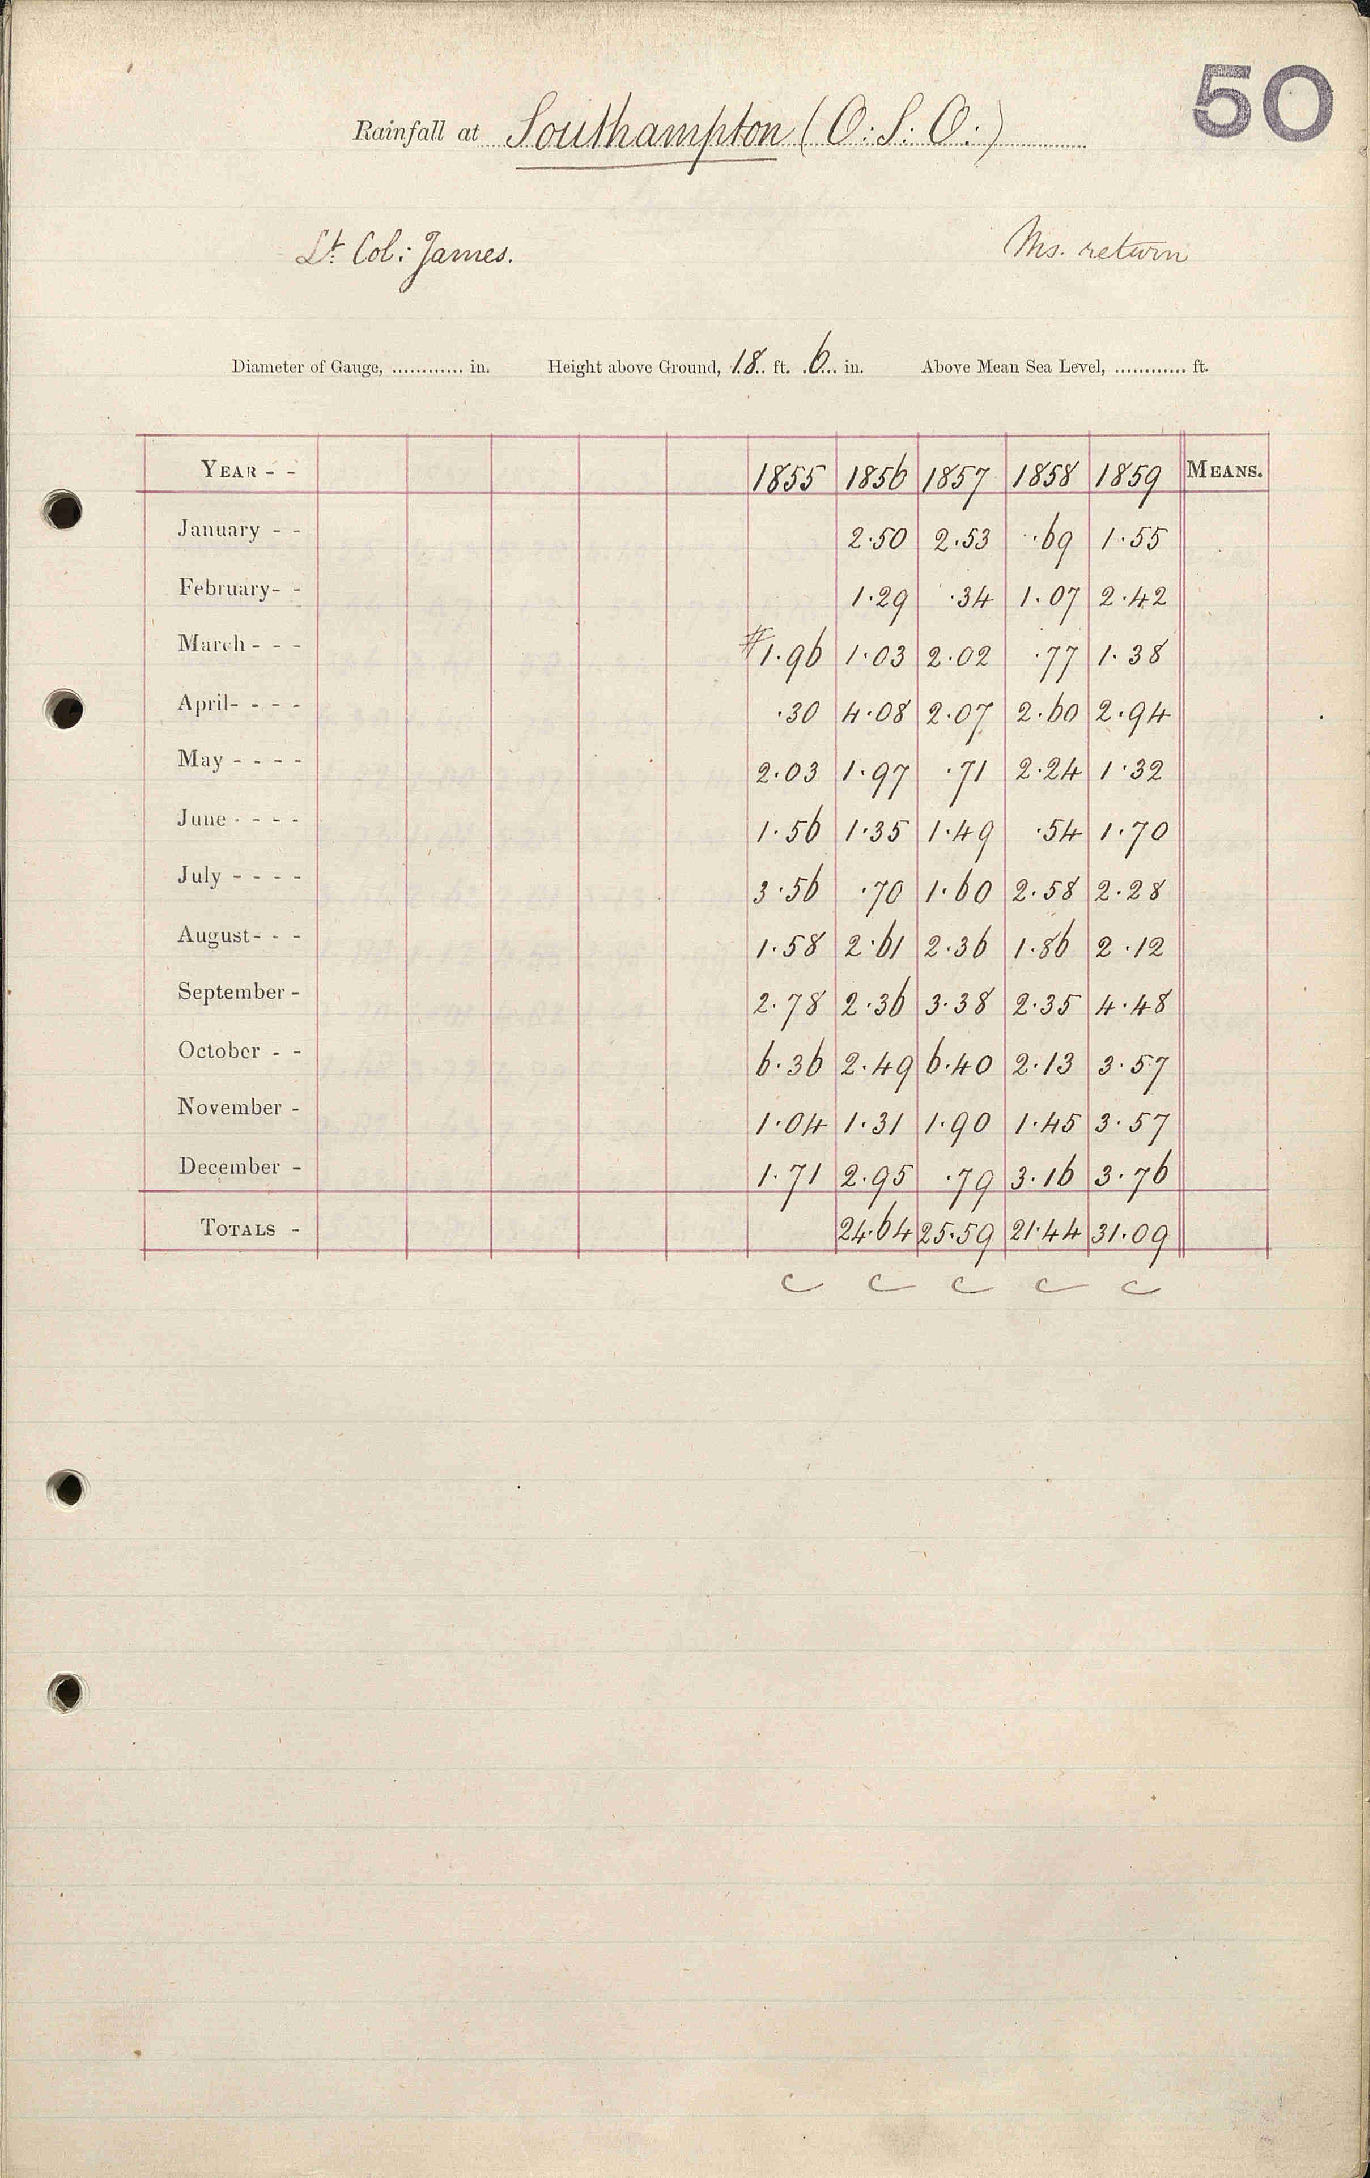 50
Rainfall at Southampton (O:S:O:)
Lt. Col: James. Ms. return
Diameter of Gauge, ............ in. Height above Ground, 18 ft. 6 in. Above Mean Sea Level, ............ ft.
YEAR - - 1855 1856 1857 1858 1859 MEANS.
January - - 2.50 2.53 .69 1.55
February - - 1.29 .34 1.07 2.42
March - - - #1.96 1.03 2.02 .77 1.38
April - - - - .30 4.08 2.07 2.60 2.94
May - - - - 2.03 1.97 .71 2.24 1.32
June - - - - 1.56 1.35 1.49 .54 1.70
July - - - - 3.56 .70 1.60 2.58 2.28
August - - - 1.58 2.61 2.36 1.86 2.12
September - 2.78 2.36 3.38 2.35 4.48
October - - 6.36 2.49 6.40 2.13 3.57
November - 1.04 1.31 1.90 1.45 3.57
December - 1.71 2.95 .79 3.16 3.76
TOTALS - 24.64 25.59 21.44 31.09
c c c c c